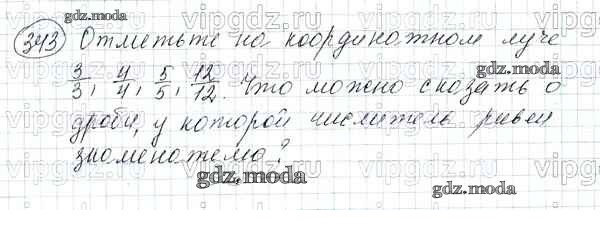 343 Отметьте на координатном луче
3/3, 4/4, 5/5, 12/12. Что можно сказать о
дроби, у которой числитель равен
знаменателю?
gdz.moda
gdz.moda
gdz.moda
vipgdz.moda